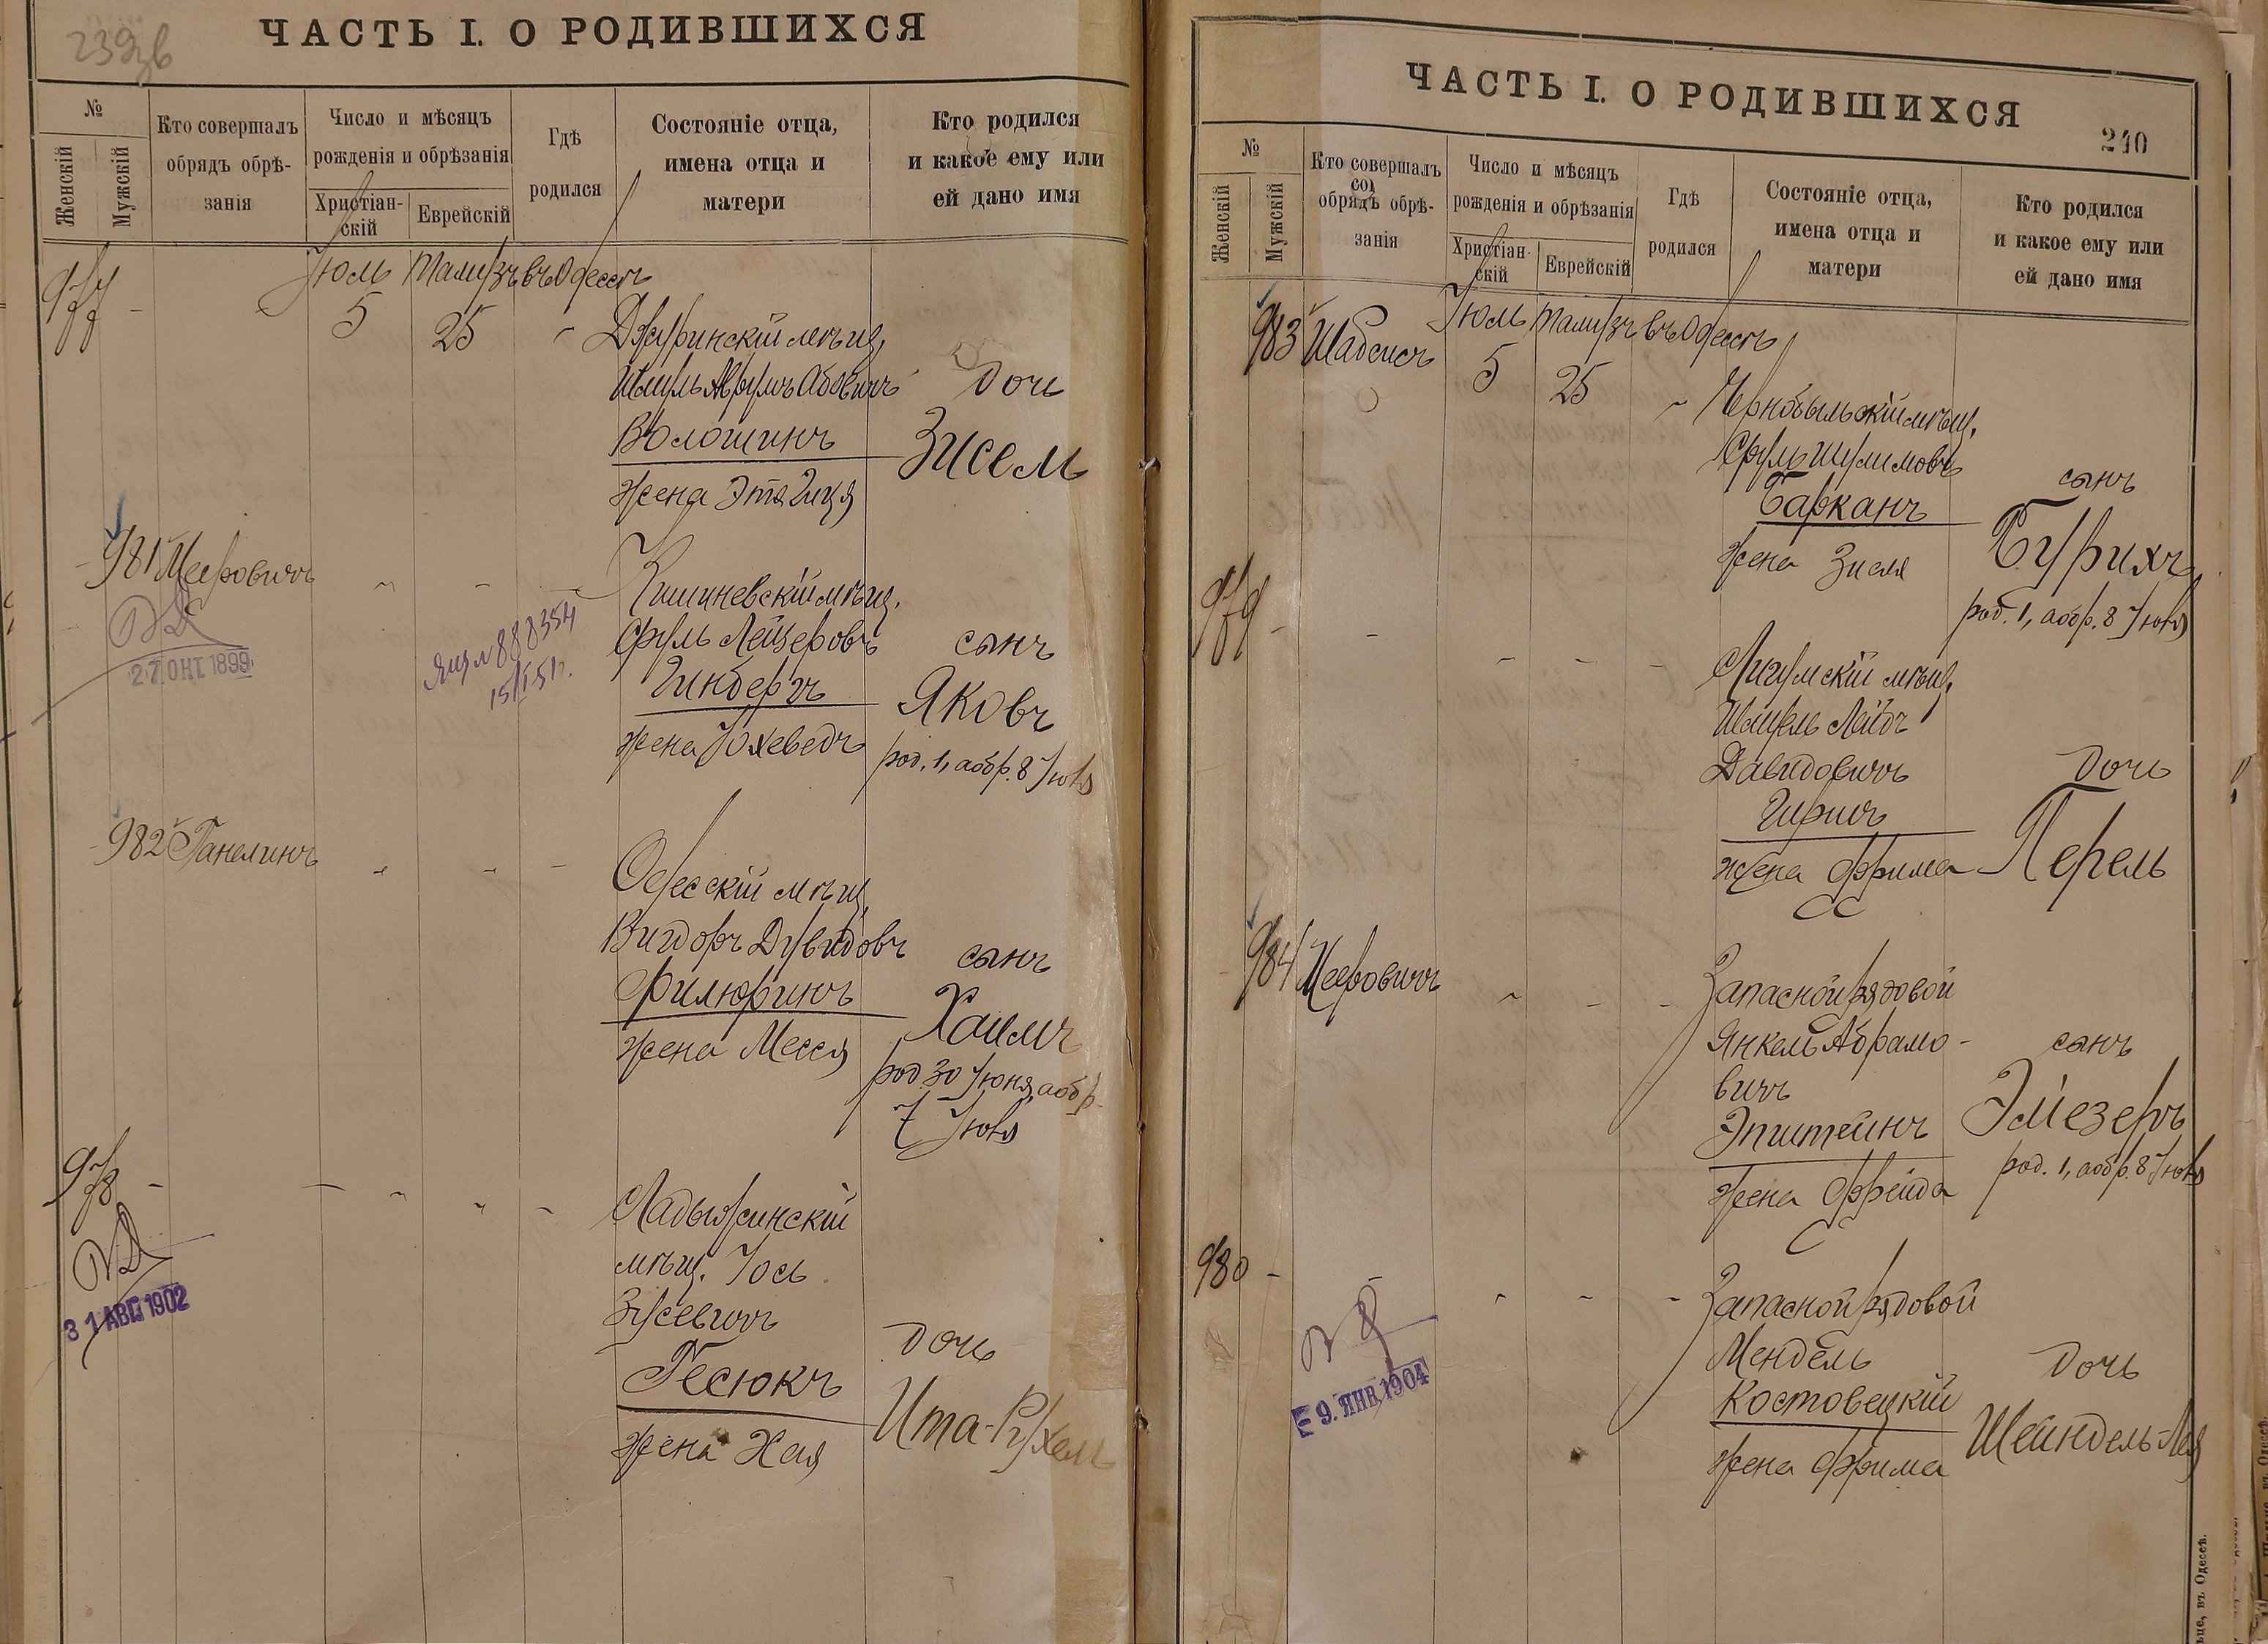 239 зв
ЧАСТЬ I. О РОДИВШИХСЯ
№
Женскій
Мужскій
Кто совершалъ
обрядъ обрѣ-
занія
Число и мѣсяцъ
рожденія и обрѣзанія
Христіан-
скій
Еврейскій
Гдѣ
родился
Состояніе отца,
имена отца и
матери
Кто родился
и какое ему или
ей дано имя
977 -
Іюль Тамузъ въ Одессѣ
5 25
Джуринскій мѣщ.
Шмуль Аврумъ Абовичъ
Волошинъ
жена Эта Гица
дочь
Зисель
981 Мееровичъ
27 ОКТ 1899
888354
15/I 51 г.
Кишиневскій мѣщ.
Сруль Лейзеровъ
Гинбергъ
жена Юхеведъ
сынъ
Яковъ
род. 1, а обр. 8 Іюля
982 Ганелинъ
Одесскій мѣщ.
Вигдоръ Дувидовъ
Филюринъ
жена Месся
сынъ
Хаимъ
род. 30 Іюня, а обр.
7 Іюля
978 -
31 АВГ 1902
Ладыжинскій
мѣщ. Іось
Зусевичъ
Гесюкъ
жена Хая
дочь
Ита-Рухель
ЧАСТЬ I. О РОДИВШИХСЯ
240
№
Женскій
Мужскій
Кто совершалъ
обрядъ обрѣ-
занія
Число и мѣсяцъ
рожденія и обрѣзанія
Христіан-
скій
Еврейскій
Гдѣ
родился
Состояніе отца,
имена отца и
матери
Кто родился
и какое ему или
ей дано имя
983 Шабсисъ
Іюль Тамузъ въ Одессѣ
5 25
Чернобыльскій мѣщ.
Сруль Шулимовъ
Барканъ
жена Зисля
сынъ
Бурихъ
род. 1, а обр. 8 Іюля
979 -
Лигумскій мѣщ.
Шмуель Лейбъ
Давидовичъ
Гиршъ
жена Фрима
дочь
Перель
984 Мееровичъ
Запасной рядовой
Янкель Абрамо-
вичъ
Эпштейнъ
жена Фрейда
сынъ
Элiезеръ
род. 1, а обр. 8 Іюля
980 -
9. ЯНВ. 1904
Запасной рядовой
Мендель
Костовецкій
жена Фрима
дочь
Шейндель-Лея
въ Одессѣ.